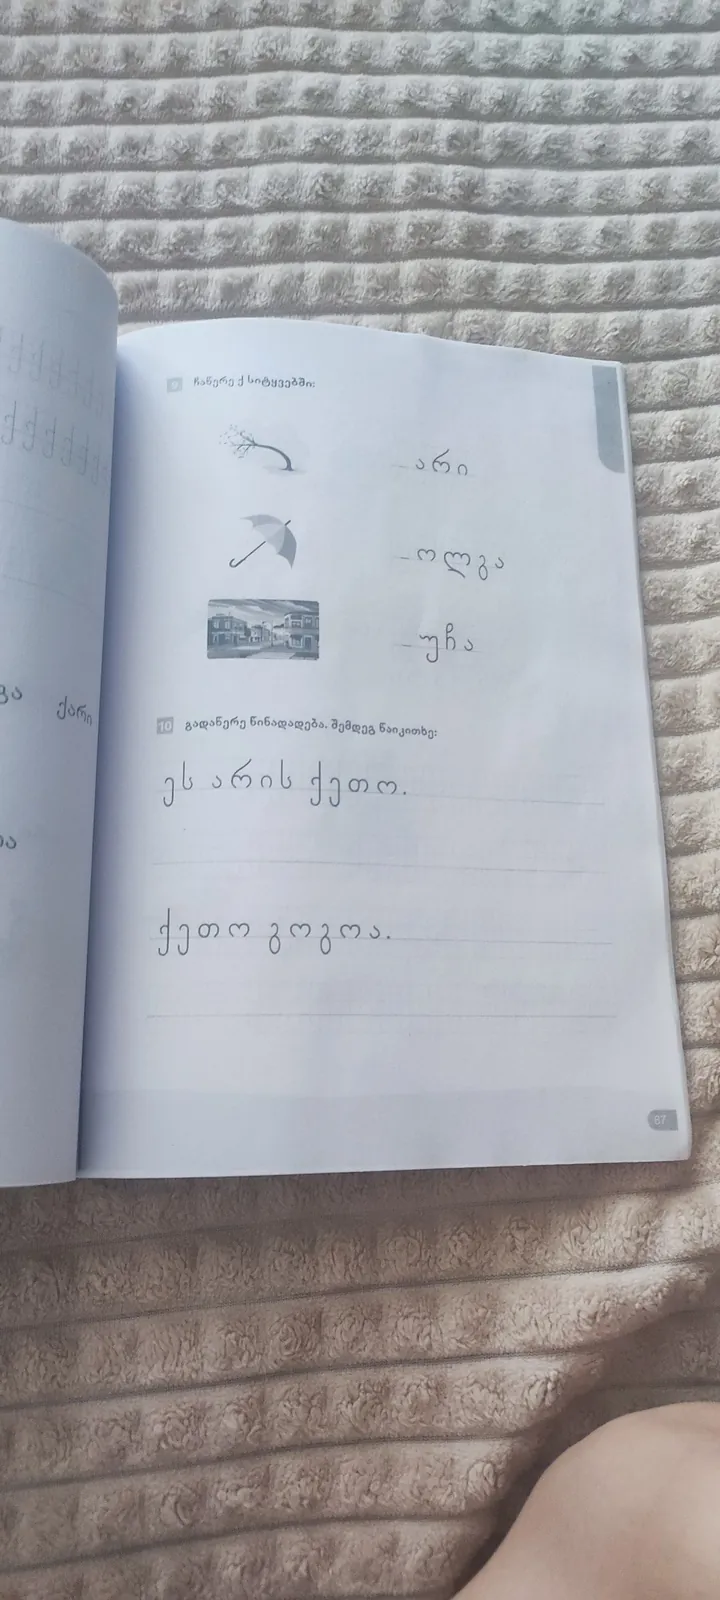 ვა ქარი
9 ჩაწერე ქ სიტყვებში:
_არი
_ოლგა
_უჩა
10 გადაწერე წინადადება. შემდეგ წაიკითხე:
ეს არის ქეთო.
ქეთო გოგოა.
87